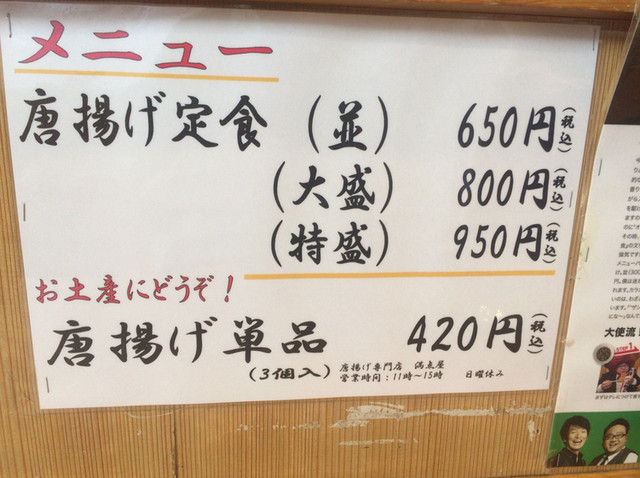 メニュー
唐揚げ定食 (並) 650円(税込)
(大盛) 800円(税込)
(特盛) 950円(税込)
お土産にどうぞ！
唐揚げ単品 420円(税込)
(3個入) 唐揚げ専門店 満点屋
営業時間：11時〜15時 日曜休み
大使流
STEP 1